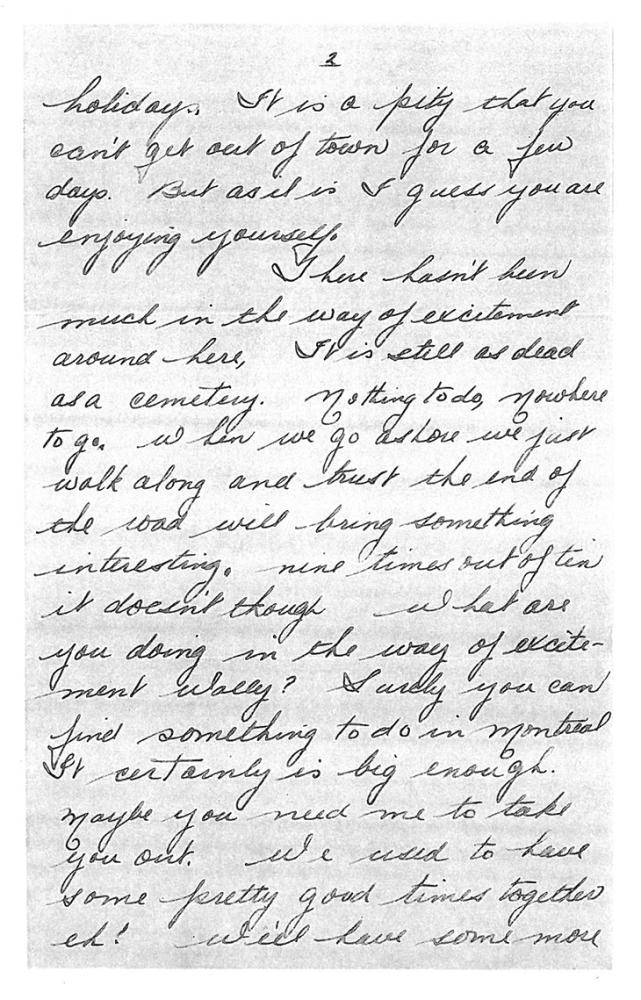 2
holidays. It is a pity that you
can't get out of town for a few
days. But as it is I guess you are
enjoying yourself.
There hasn't been
much in the way of excitement
around here, It is still as dead
as a cemetery. Nothing to do, nowhere
to go. When we go ashore we just
walk along and trust the end of
the road will bring something
interesting. nine times out of ten
it doesn't though What are
you doing in the way of excite-
ment Wally? Surely you can
find something to do in Montreal
It certainly is big enough.
Maybe you need me to take
you out. We used to have
some pretty good times together
eh! We'll have some more